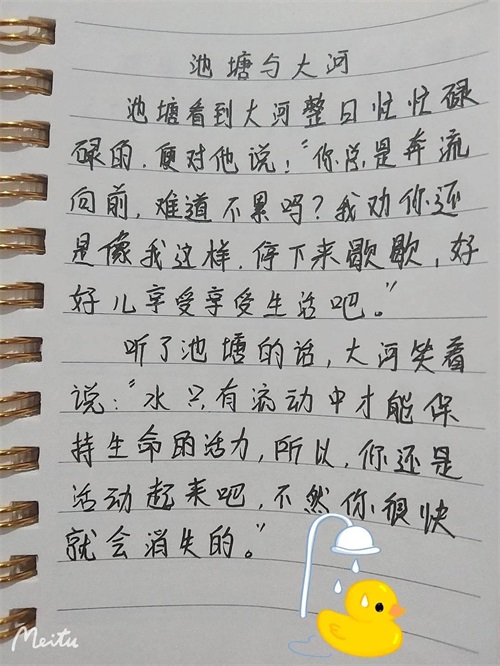 池塘与大河
池塘看到大河整日忙忙碌
碌的，便对他说："你总是奔流
向前，难道不累吗？我劝你还
是像我这样，停下来歇歇，好
好儿享受享受生活吧。"
听了池塘的话，大河笑着
说："水只有流动中才能保
持生命的活力，所以，你还是
活动起来吧，不然你很快
就会消失的。"
Meitu